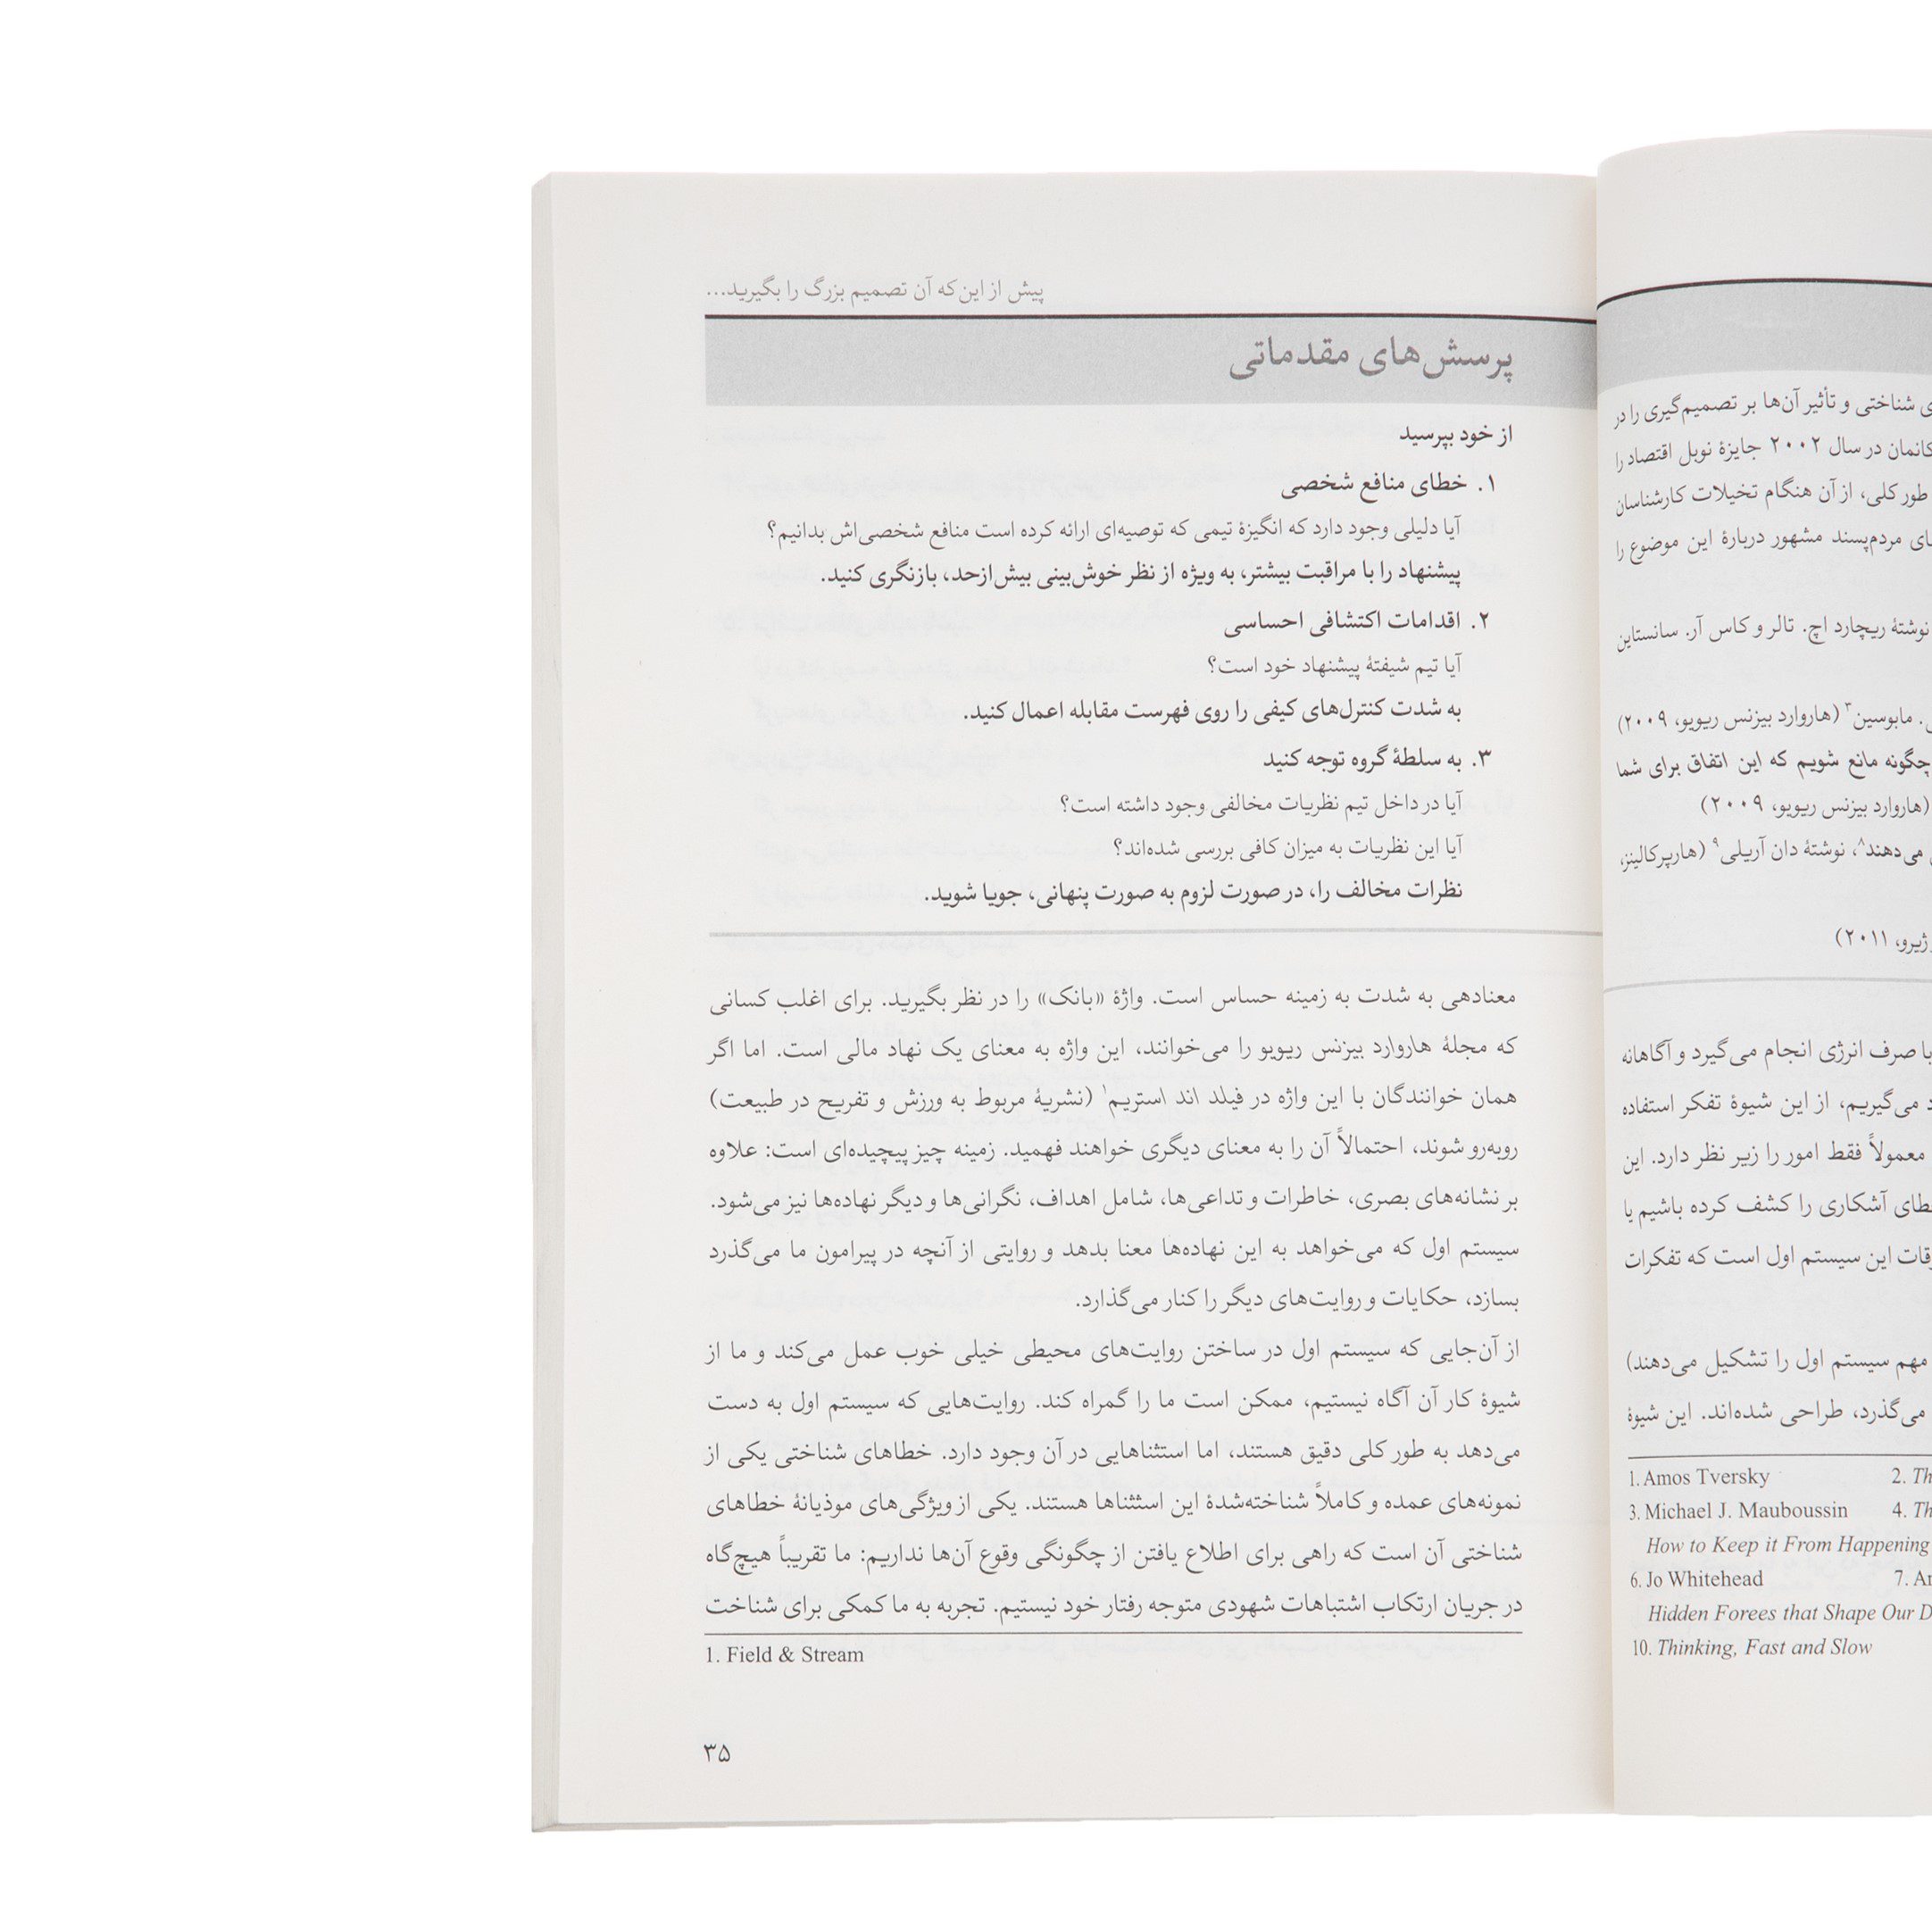 شناختی و تأثیر آن‌ها بر تصمیم‌گیری را در
کانمان در سال ۲۰۰۲ جایزهٔ نوبل اقتصاد را
طور کلی، از آن هنگام تخیلات کارشناسان
مردم‌پسند مشهور دربارهٔ این موضوع را
نوشتهٔ ریچارد اچ. تالر و کاس آر. سانستاین
مابوسین۳ (هاروارد بیزنس ریویو، ۲۰۰۹)
چگونه مانع شویم که این اتفاق برای شما
(هاروارد بیزنس ریویو، ۲۰۰۹)
می‌دهند۸، نوشتهٔ دان آریلی۹ (هارپرکالینز،
ژیرو، ۲۰۱۱)
با صرف انرژی انجام می‌گیرد و آگاهانه
می‌گیریم، از این شیوهٔ تفکر استفاده
معمولاً فقط امور را زیر نظر دارد. این
آشکاری را کشف کرده باشیم یا
این سیستم اول است که تفکرات
مهم سیستم اول را تشکیل می‌دهند)
می‌گذرد، طراحی شده‌اند. این شیوهٔ
1. Amos Tversky 2.
3. Michael J. Mauboussin 4.
How to Keep it From Happening
6. Jo Whitehead 7.
Hidden Forees that Shape Our
10. Thinking, Fast and Slow
پیش از این‌که آن تصمیم بزرگ را بگیرید...
پرسش‌های مقدماتی
از خود بپرسید
۱. خطای منافع شخصی
آیا دلیلی وجود دارد که انگیزهٔ تیمی که توصیه‌ای ارائه کرده است منافع شخصی‌اش بدانیم؟
پیشنهاد را با مراقبت بیشتر، به ویژه از نظر خوش‌بینی بیش‌ازحد، بازنگری کنید.
۲. اقدامات اکتشافی احساسی
آیا تیم شیفتهٔ پیشنهاد خود است؟
به شدت کنترل‌های کیفی را روی فهرست مقابله اعمال کنید.
۳. به سلطهٔ گروه توجه کنید
آیا در داخل تیم نظریات مخالفی وجود داشته است؟
آیا این نظریات به میزان کافی بررسی شده‌اند؟
نظرات مخالف را، در صورت لزوم به صورت پنهانی، جویا شوید.
معنادهی به شدت به زمینه حساس است. واژهٔ «بانک» را در نظر بگیرید. برای اغلب کسانی
که مجلهٔ هاروارد بیزنس ریویو را می‌خوانند، این واژه به معنای یک نهاد مالی است. اما اگر
همان خوانندگان با این واژه در فیلد اند استریم۱ (نشریهٔ مربوط به ورزش و تفریح در طبیعت)
روبه‌رو شوند، احتمالاً آن را به معنای دیگری خواهند فهمید. زمینه چیز پیچیده‌ای است: علاوه
بر نشانه‌های بصری، خاطرات و تداعی‌ها، شامل اهداف، نگرانی‌ها و دیگر نهاده‌ها نیز می‌شود.
سیستم اول که می‌خواهد به این نهاده‌ها معنا بدهد و روایتی از آنچه در پیرامون ما می‌گذرد
بسازد، حکایات و روایت‌های دیگر را کنار می‌گذارد.
از آن‌جایی که سیستم اول در ساختن روایت‌های محیطی خیلی خوب عمل می‌کند و ما از
شیوهٔ کار آن آگاه نیستیم، ممکن است ما را گمراه کند. روایت‌هایی که سیستم اول به دست
می‌دهد به طور کلی دقیق هستند، اما استثناهایی در آن وجود دارد. خطاهای شناختی یکی از
نمونه‌های عمده و کاملاً شناخته‌شدهٔ این استثناها هستند. یکی از ویژگی‌های موذیانهٔ خطاهای
شناختی آن است که راهی برای اطلاع یافتن از چگونگی وقوع آن‌ها نداریم: ما تقریباً هیچ‌گاه
در جریان ارتکاب اشتباهات شهودی متوجه رفتار خود نیستیم. تجربه به ما کمکی برای شناخت
1. Field & Stream
۳۵